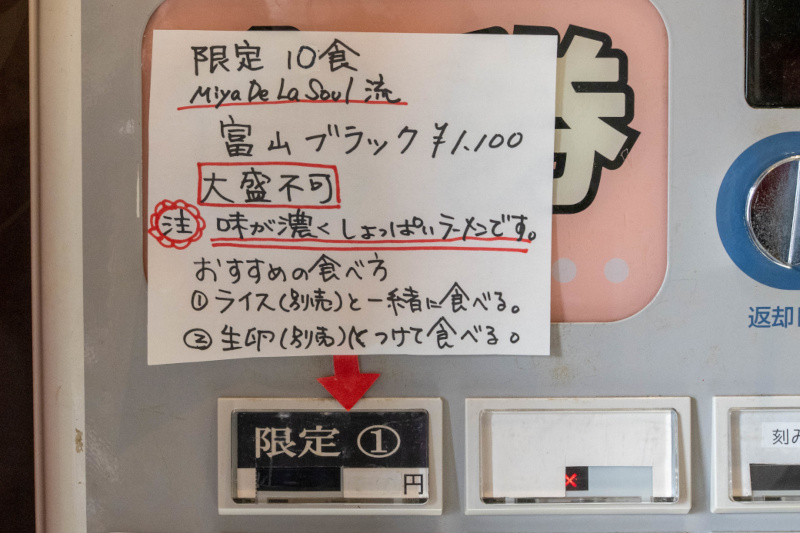 限定 10食
Miya De La Soul 流
富山ブラック ¥1.100
大盛不可
注 味が濃くしょっぱいラーメンです。
おすすめの食べ方
①ライス(別売)と一緒に食べる。
②生卵(別売)につけて食べる。
券
返却
限定 ①
円
刻み